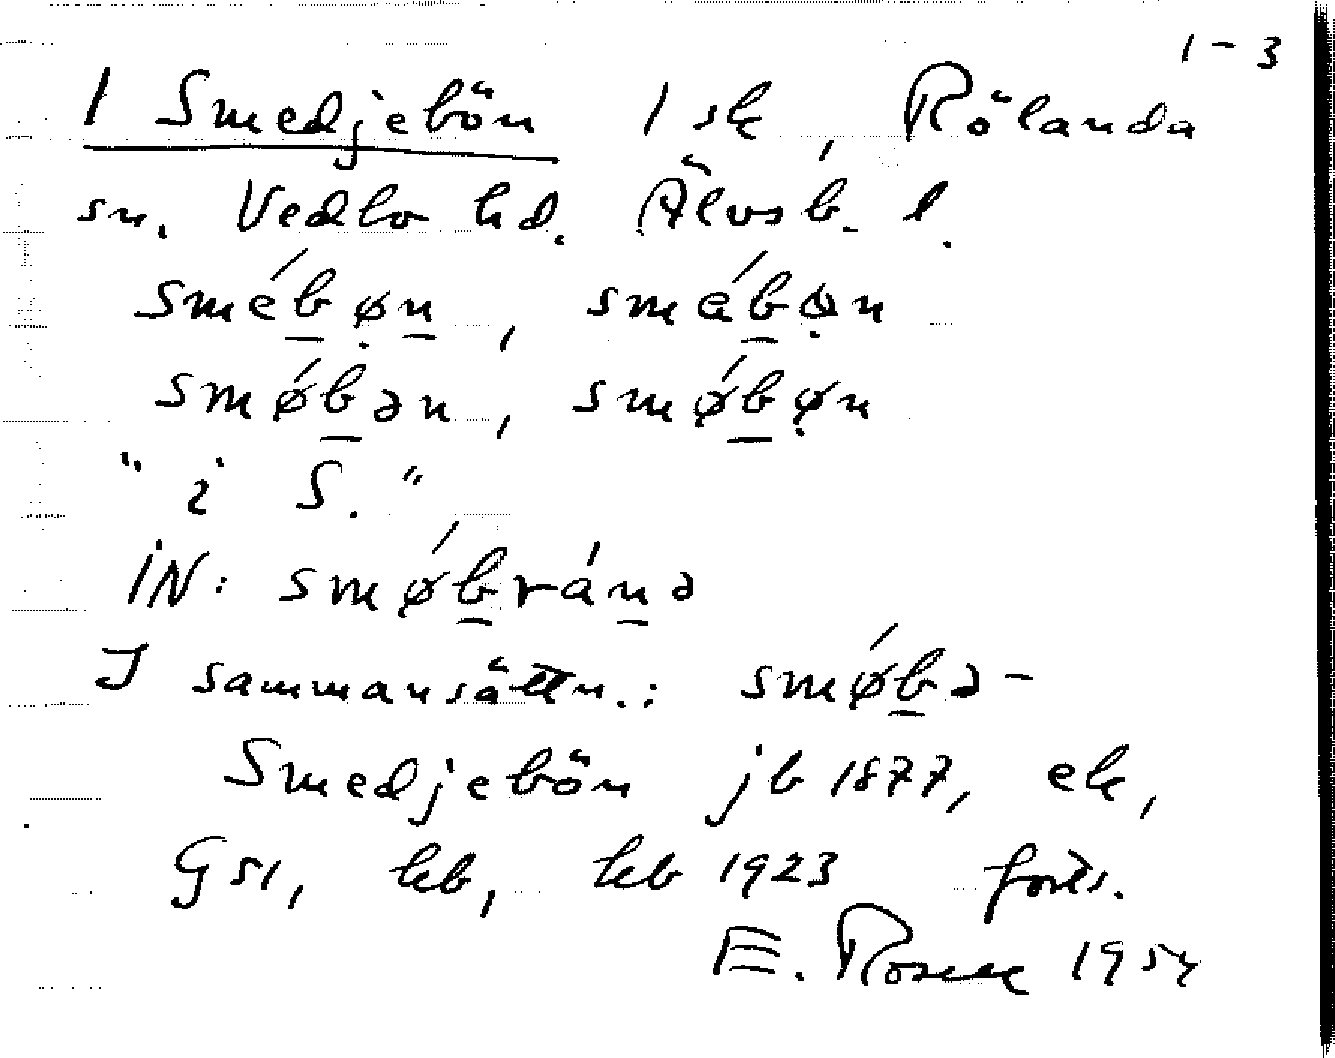 1-3
1 Smedjebön 1 sk, Rölanda
sn. Vedbo hd. Älvsb. l.
smébø̣n, smébọn
smǿbən, smǿbø̣n
"i S."
IN: smǿbránə
I sammansättn.: smǿbə-
Smedjebön jb 1877, ek,
Gsl, kb, kb 1923 forts.
E. Rosell 1954